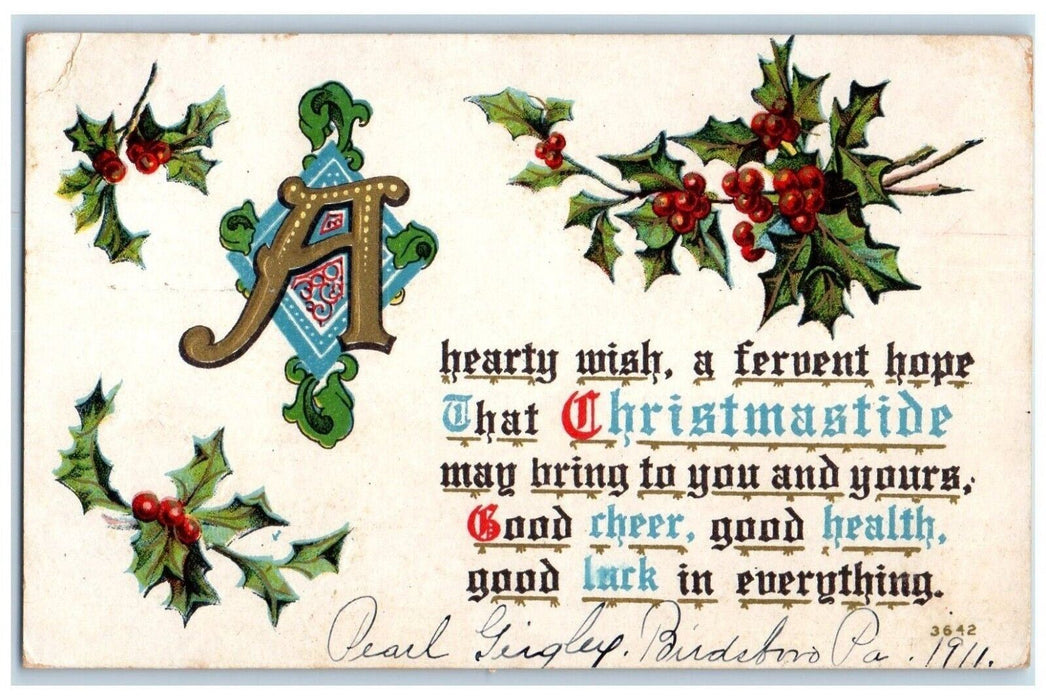 A
hearty wish, a fervent hope
That Christmastide
may bring to you and yours,
Good cheer, good health,
good luck in everything.
3642
Pearl Geigley. Birdsboro Pa. 1911.